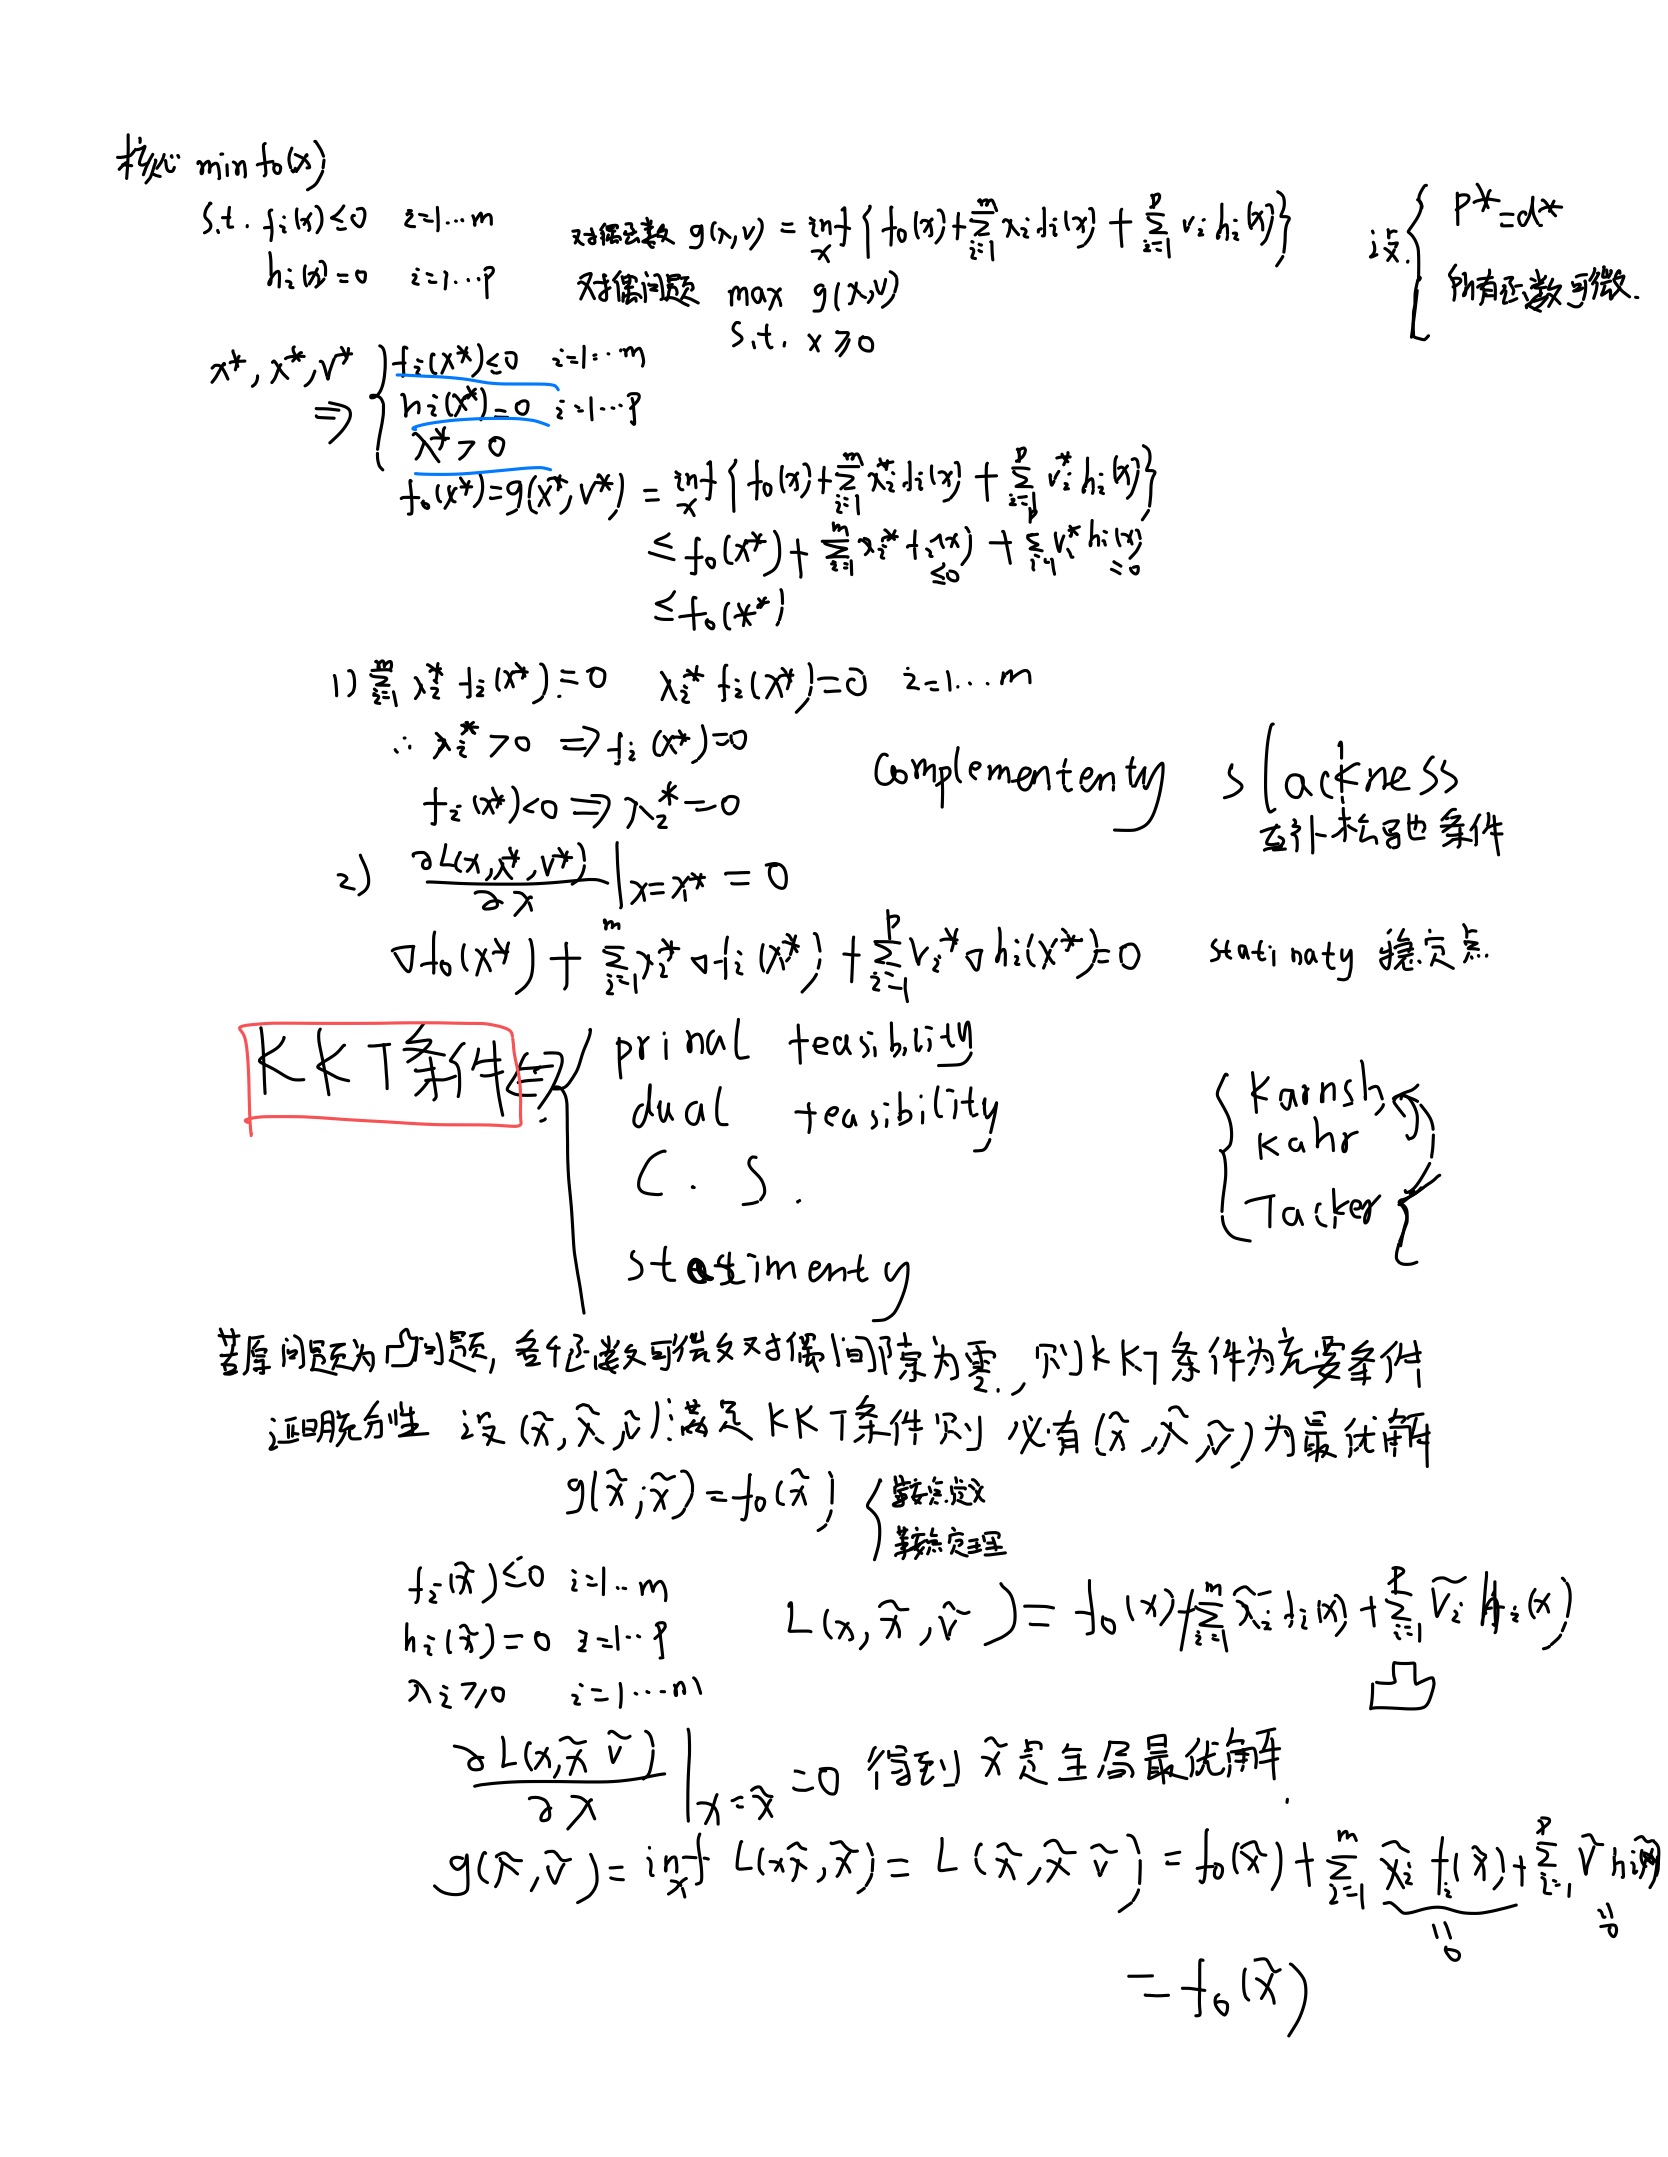 核心 min f₀(x)
s.t. fᵢ(x) ≤ 0 i=1···m
hᵢ(x) = 0 i=1···p
对偶函数 g(λ,v) = inf_x { f₀(x) + Σ_{i=1}^m λᵢ fᵢ(x) + Σ_{i=1}^p vᵢ hᵢ(x) }
对偶问题 max g(λ,v)
s.t. λ ≥ 0
设. { p* = d*
所有函数可微.
x*, λ*, v* ⇒ { fᵢ(x*) ≤ 0 i=1···m
hᵢ(x*) = 0 i=1···p
λ* > 0
f₀(x*) = g(λ*, v*) = inf_x { f₀(x) + Σ_{i=1}^m λᵢ* fᵢ(x) + Σ_{i=1}^p vᵢ* hᵢ(x) }
≤ f₀(x*) + Σ_{i=1}^m λᵢ* fᵢ(x) + Σ_{i=1}^p vᵢ* hᵢ(x)
≤0 =0
≤ f₀(x*)
1) Σ_{i=1}^m λᵢ* fᵢ(x*) = 0 λᵢ* fᵢ(x*) = 0 i=1···m
∴ λᵢ* > 0 ⇒ fᵢ(x*) = 0
fᵢ(x*) < 0 ⇒ λᵢ* = 0
Complemententy slackness
互补松弛条件
2) ∂L(x,λ*,v*)/∂x |_{x=x*} = 0
∇f₀(x*) + Σ_{i=1}^m λᵢ* ∇fᵢ(x*) + Σ_{i=1}^p vᵢ* ∇hᵢ(x*) = 0 statinaty 稳定点.
KKT条件 ⇔ prinal feasibility
dual feasibility
C. S.
statimenty
{ Karnsh
Kahr
Tacker
若原问题为凸问题, 各个函数可微及对偶间隙为零, 则KKT条件为充要条件
证明充分性 设(x̃, λ̃, ṽ)满足KKT条件则 必有(x̃, λ̃, ṽ)为最优解
g(λ̃, ṽ) = f₀(x̃) { 鞍点定义
鞍点定理
fᵢ(x̃) ≤ 0 i=1··m
hᵢ(x̃) = 0 i=1··p
λᵢ ≥ 0 i=1···m
L(x, λ̃, ṽ) = f₀(x) + Σ_{i=1}^m λ̃ᵢ fᵢ(x) + Σ_{i=1}^p ṽᵢ hᵢ(x)
凸
∂L(x,λ̃ ṽ)/∂x |_{x=x̃} = 0 得到 x̃ 是全局最优解.
g(λ̃, ṽ) = inf_x L(x λ̃, ṽ) = L(x̃, λ̃ ṽ) = f₀(x̃) + Σ_{i=1}^m λ̃ᵢ fᵢ(x̃) + Σ_{i=1}^p ṽ hᵢ(x̃)
=0 =0
= f₀(x̃)